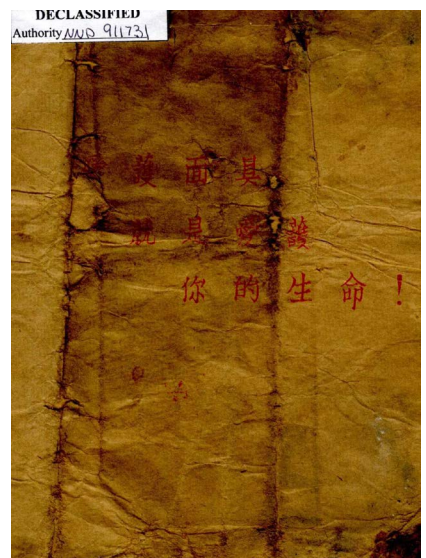 DECLASSIFIED
Authority NND 911731
愛護面具
就是愛護
你的生命！